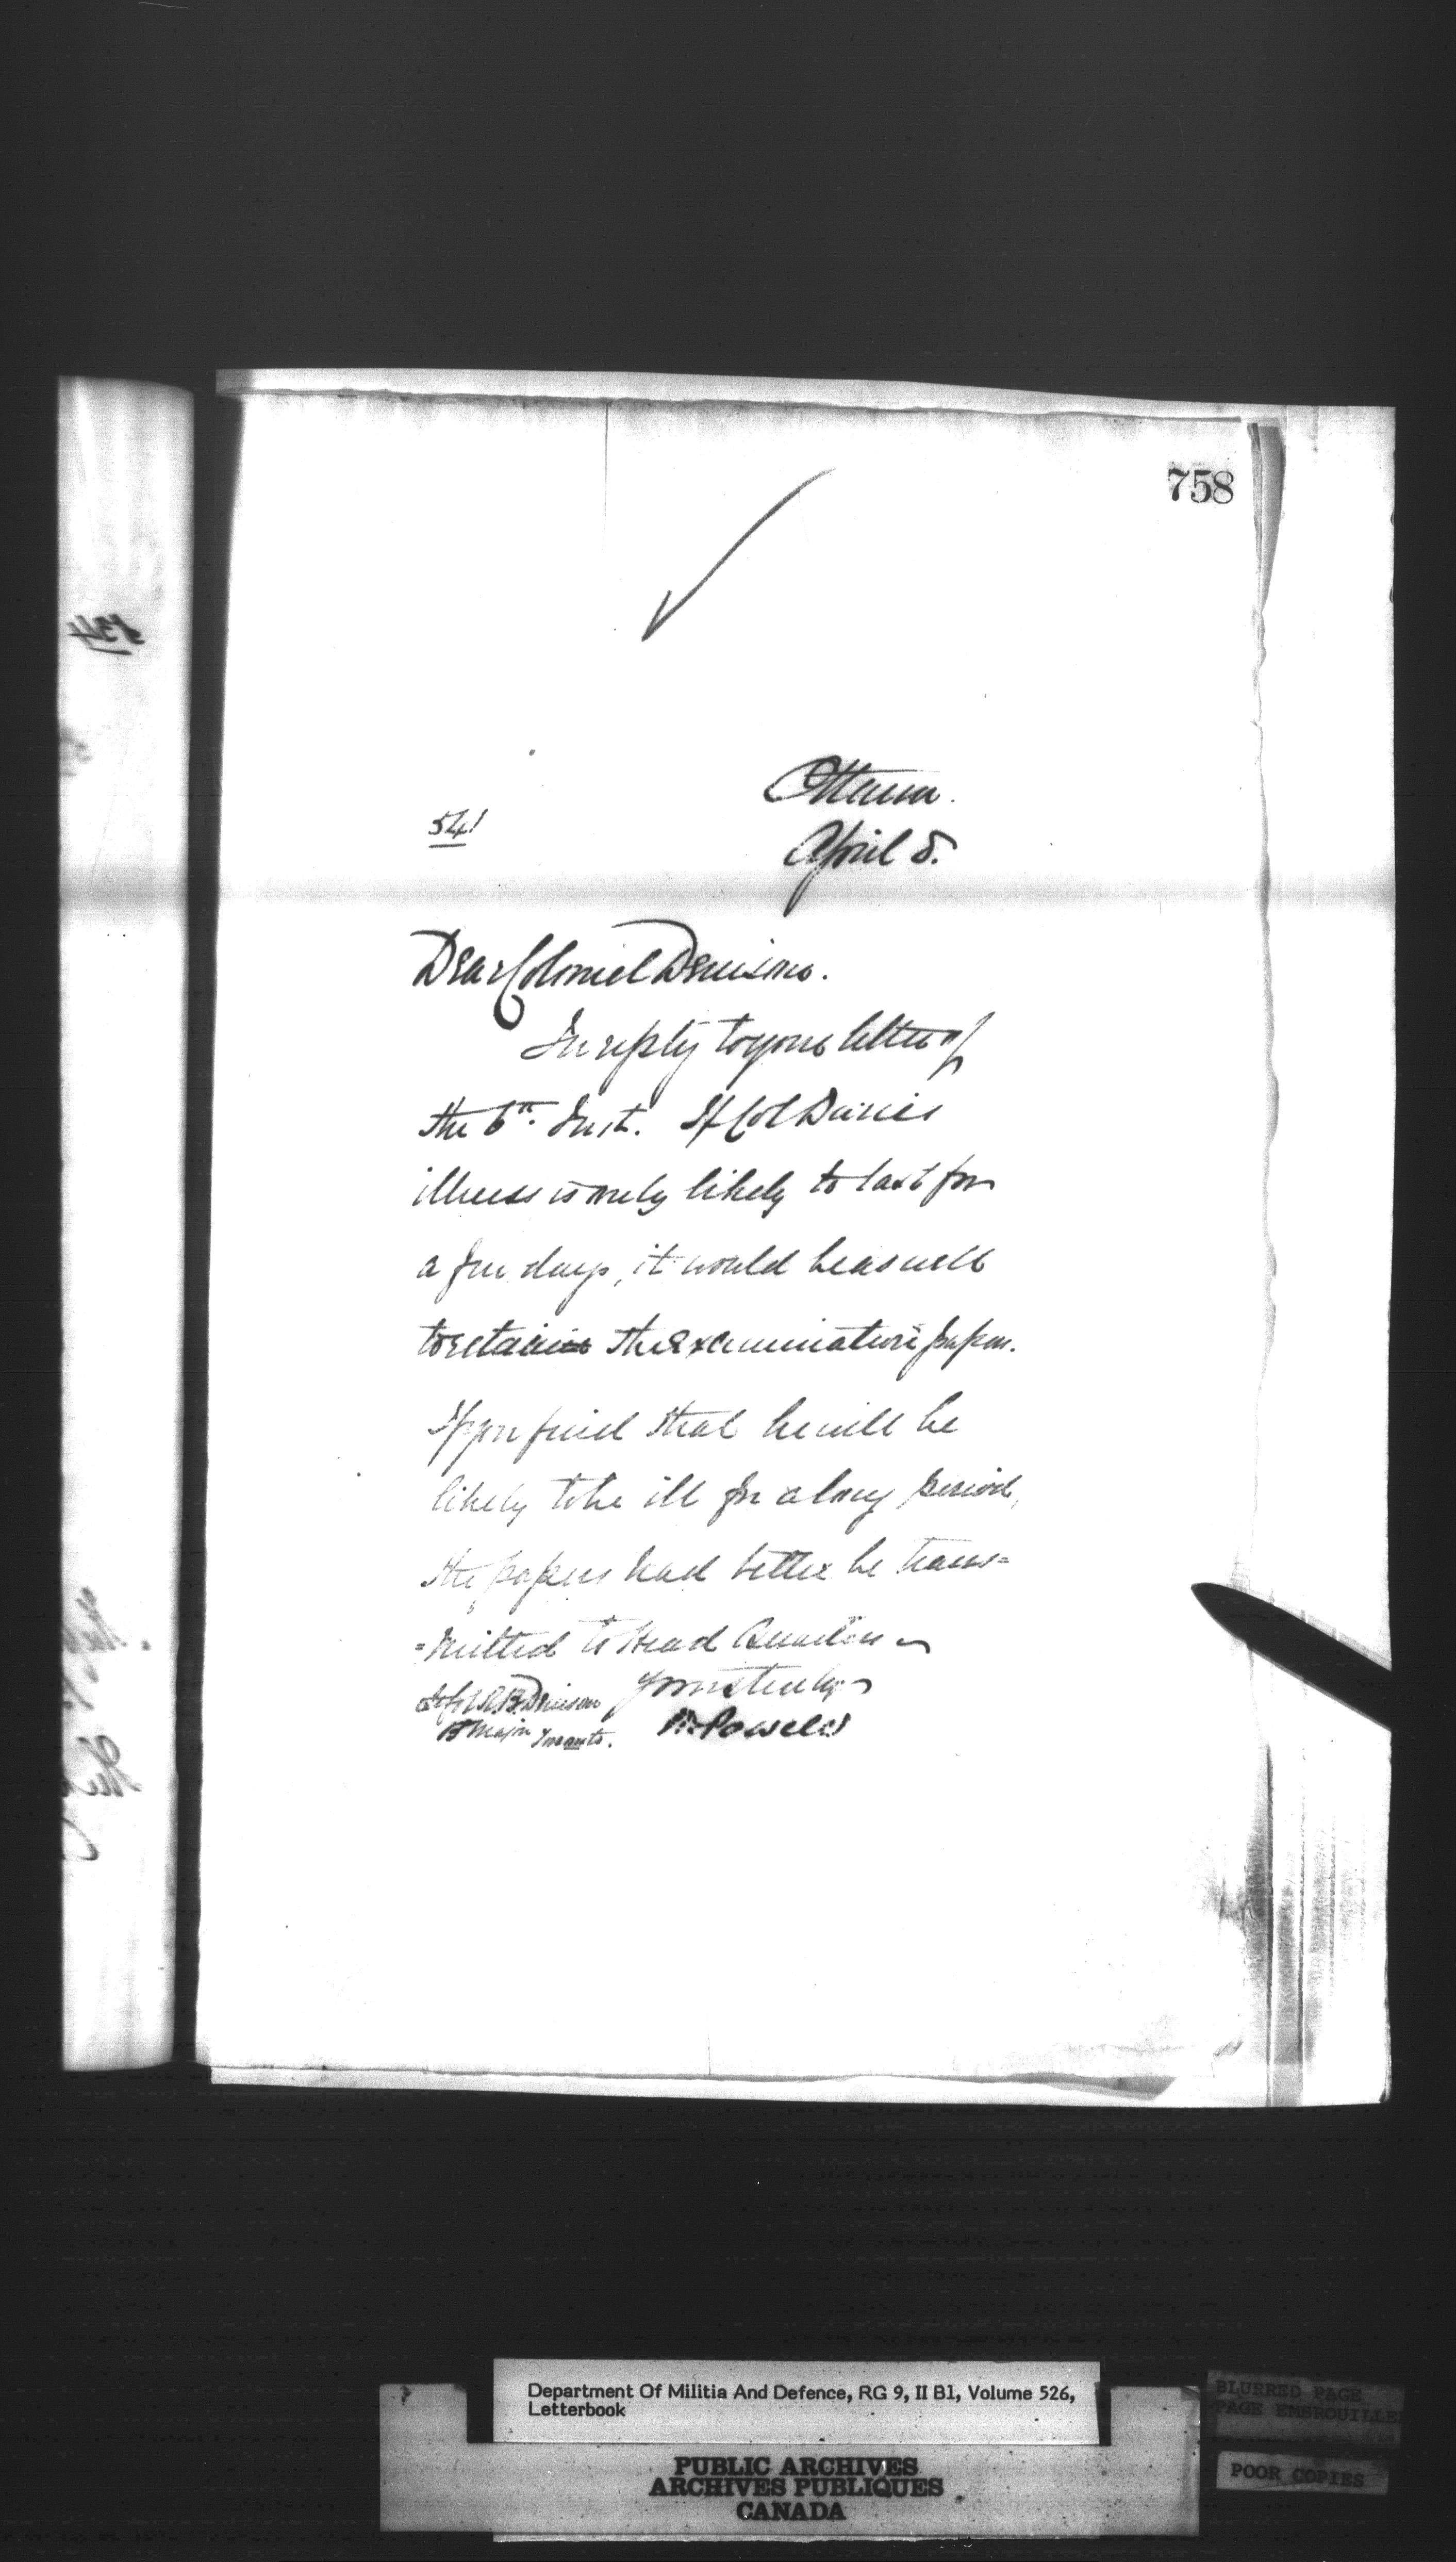 758
Ottawa.
541
April 8.
Dear Colonel Denison.
In reply to your letter of
the 6th. Inst. If Col Davies
illness is only likely to last for
a few days, it would be as well
to retain the examination papers.
If you find that he will be
likely to be ill for a long period,
the papers had better be trans=
=mitted to Head Quarters
Yours truly
Lt Col R.B. Denison
B Major Toronto.
W Powell
Department Of Militia And Defence, RG 9, II B1, Volume 526,
Letterbook
PUBLIC ARCHIVES
ARCHIVES PUBLIQUES
CANADA
BLURRED PAGE
PAGE EMBROUILLEE
POOR COPIES